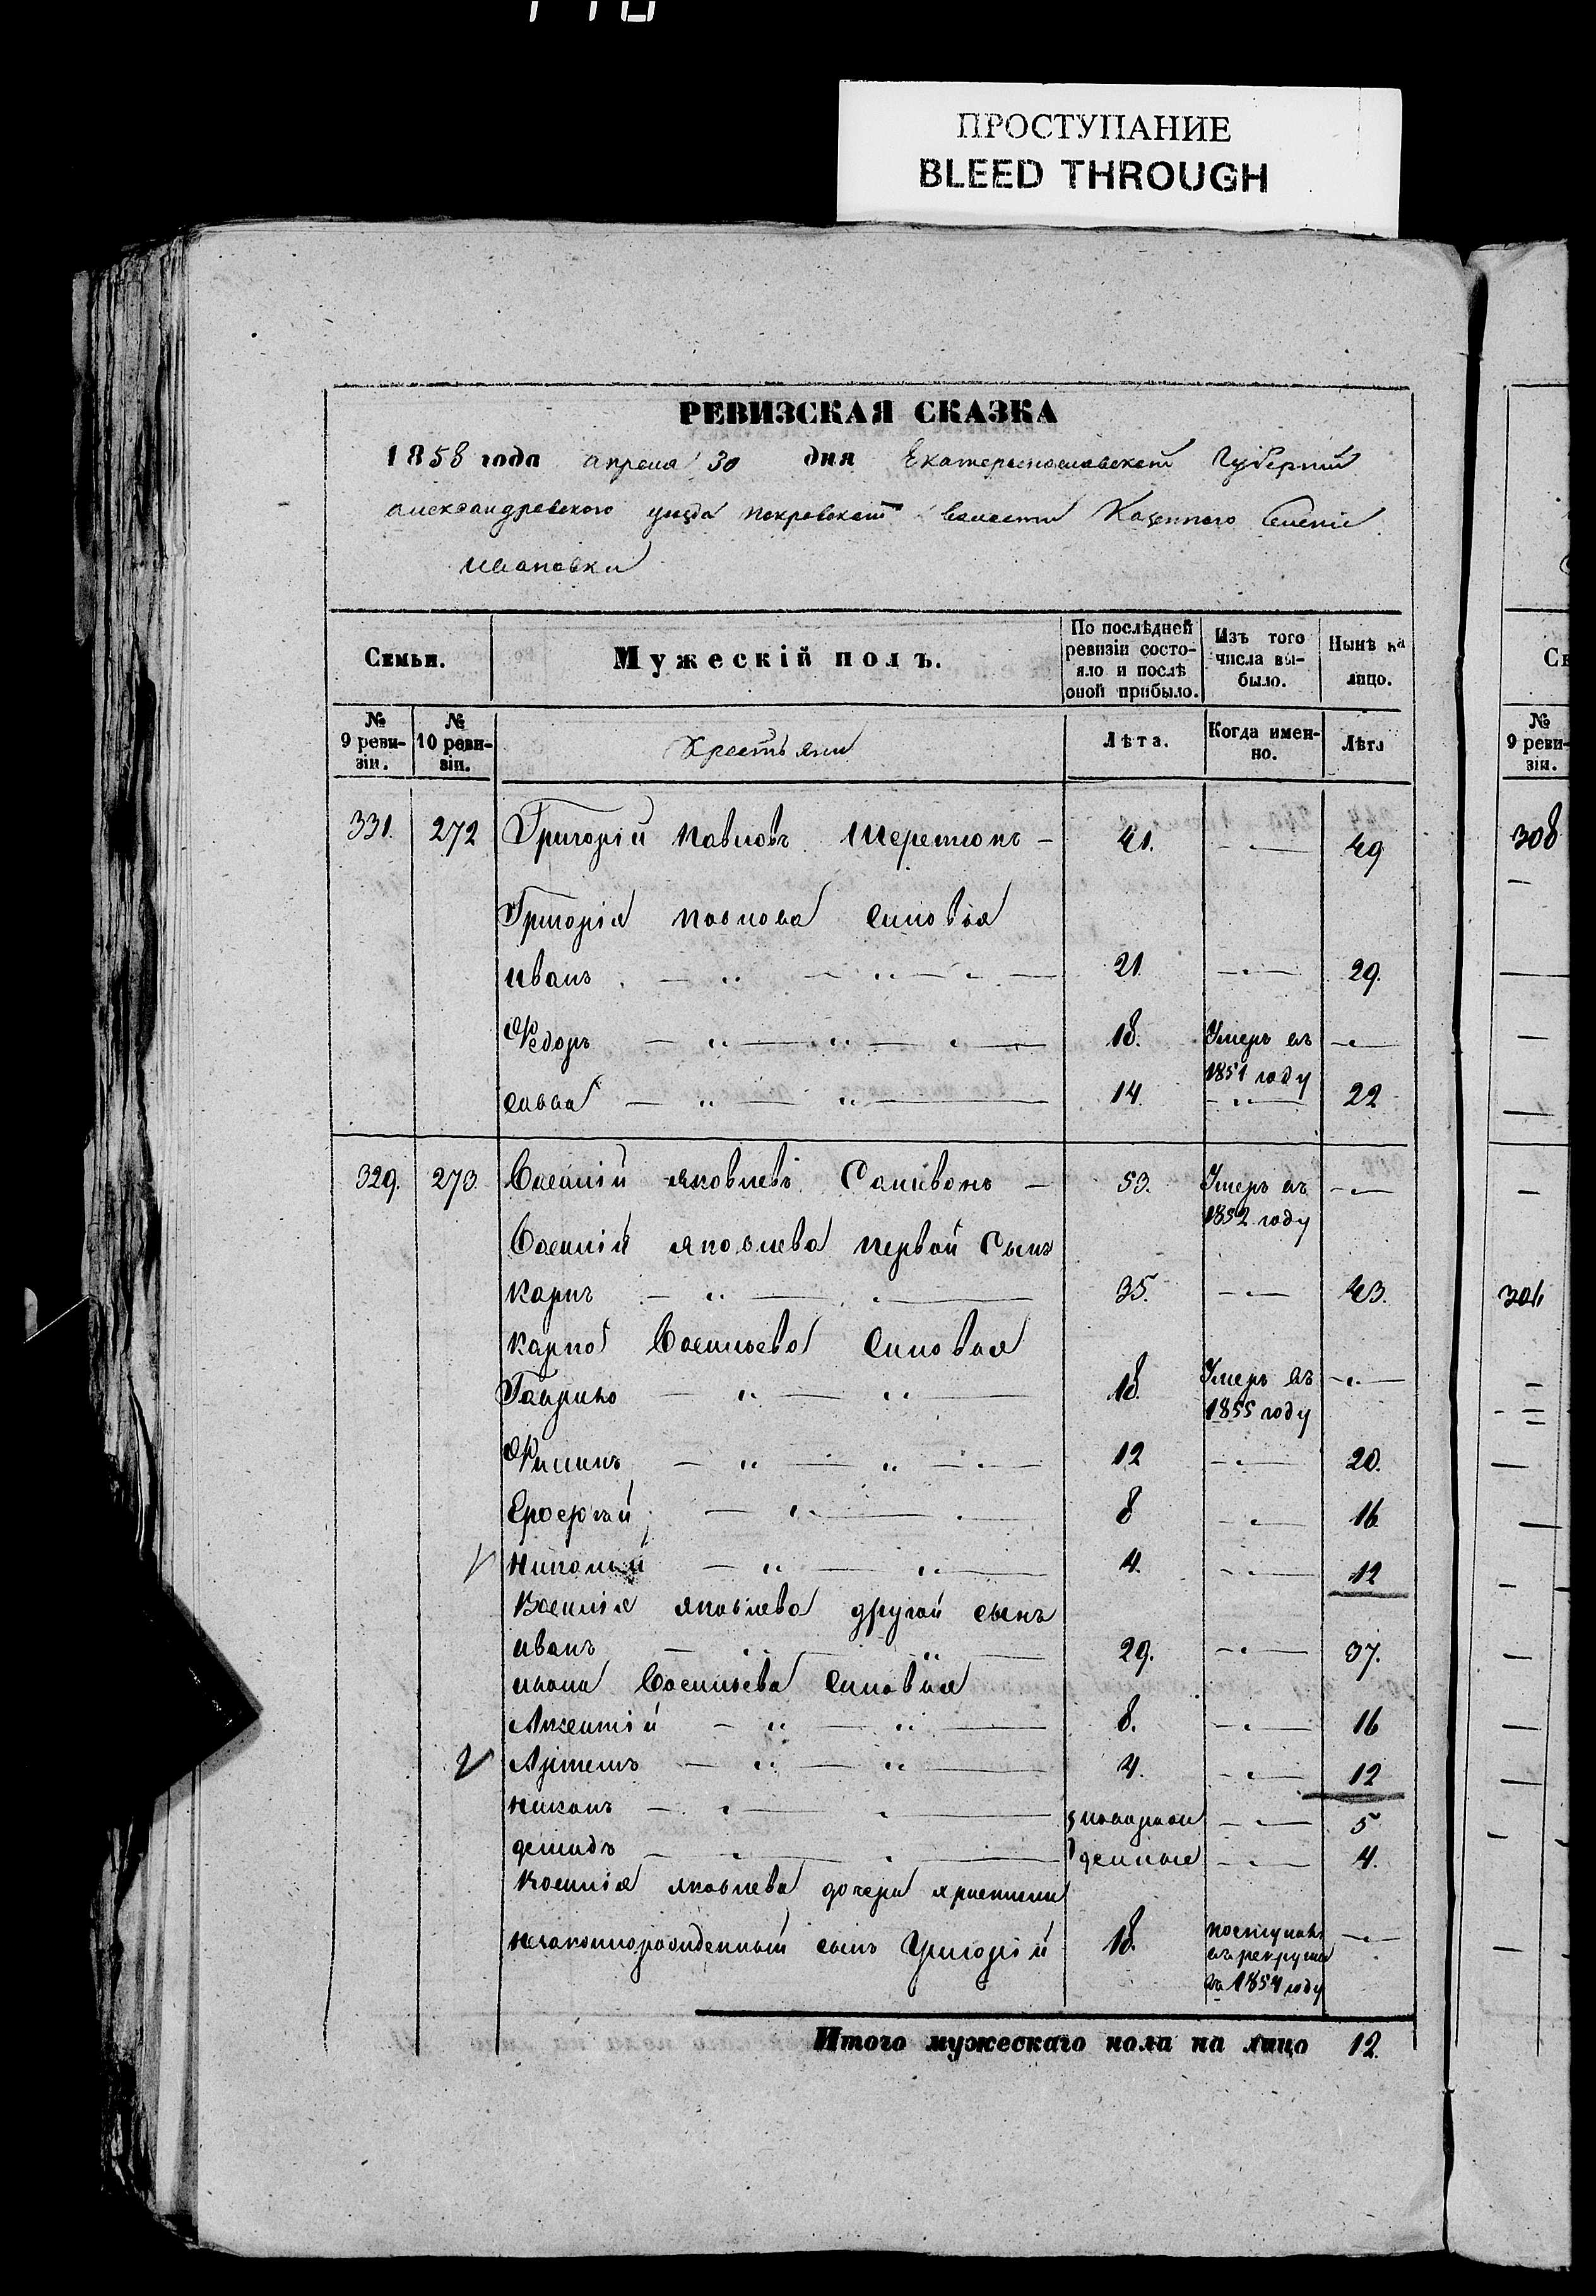 ПРОСТУПАНИЕ
BLEED THROUGH
РЕВИЗСКАЯ СКАЗКА
1858 года апреля 30 дня Екатеринославской Губернии
александровского уезда покровской волости Казенного Селения
Ивановки
Семьи. Мужескій полъ. По послѣдней ревизіи состо-яло и послѣ оной прибыло. Изъ того числа вы-было. Нынѣ на лицо.
№ 9 реви-зіи. № 10 реви-зіи. Крестьяни Лѣта. Когда имен-но. Лѣта
331. 272 Григорій Павловъ — 41. — 49
Григорія павлова синовья
иванъ 21 — 29.
Федоръ 18. Умеръ въ —
1851 году
савва 14 — 22
329. 273. Василій яковлевъ — 53. Умеръ въ —
1852 году
Василія яковлева первой Сынъ
карпъ 35. — 43.
карпа Васильева Синовья
Гаврило 18. Умеръ въ —
1855 году
Филипъ 12 — 20.
Ерофѣй 8 — 16
Николай 4. — 12
Василія яковлева другой сынъ
иванъ 29. — 37.
ивана Васильева Синовья
8. — 16
Артемъ 4. — 12
никонъ новорож — 5
демидъ денные — 4.
Василія яковлева дочери христини
незаконнорожденный сынъ Григорій 18. поступилъ —
въ рекруты
въ 1854 году
Итого мужескаго пола на лицо 12.
308
301
№
9 реви-
зіи.